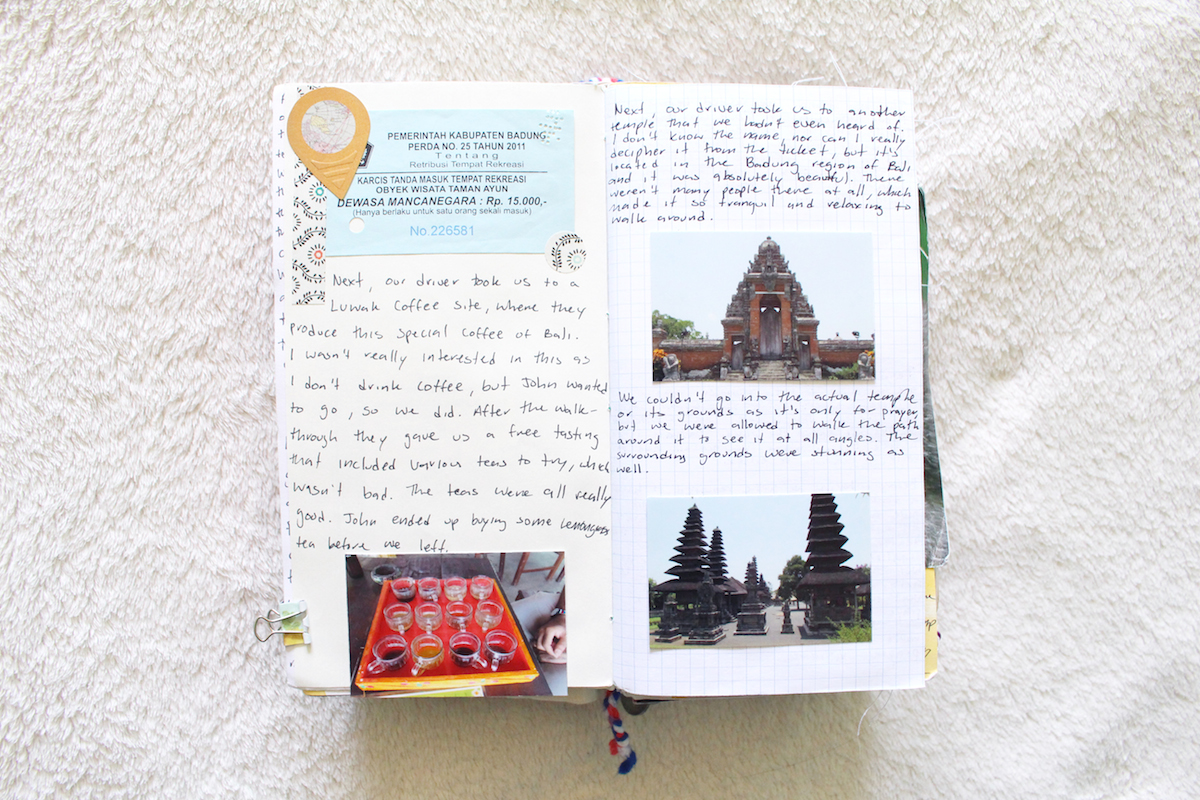 PEMERINTAH KABUPATEN BADUNG
PERDA NO. 25 TAHUN 2011
Tentang
Retribusi Tempat Rekreasi
KARCIS TANDA MASUK TEMPAT REKREASI
OBYEK WISATA TAMAN AYUN
DEWASA MANCANEGARA : Rp. 15.000,-
(Hanya berlaku untuk satu orang sekali masuk)
No.226581
Next, our driver took us to a
Luwak Coffee Site, where they
produce this special coffee of Bali.
I wasn't really interested in this as
I don't drink coffee, but John wanted
to go, so we did. After the walk-
through they gave us a free tasting
that included various teas to try, which
wasn't bad. The teas were all really
good. John ended up buying some lemongrass
tea before we left.
Next, our driver took us to another
temple that we hadn't even heard of.
I don't know the name, nor can I really
decipher it from the ticket, but it's
located in the Badung region of Bali
and it was absolutely beautiful. There
weren't many people there at all, which
made it so tranquil and relaxing to
walk around.
We couldn't go into the actual temple
or its grounds as it's only for prayer,
but we were allowed to walk the path
around it to see it at all angles. The
surrounding grounds were stunning as
well.